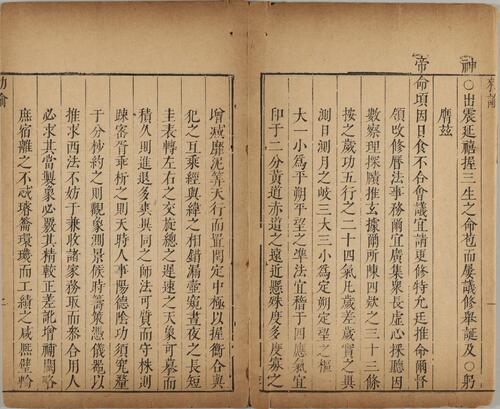 神○出震延禧握三生之命苞而屢議修舉誕及○躬
膺玆
帝命項因日食不合會議宜請更修特允廷推命爾督
領改修曆法事務爾宜廣集衆長虛心採聽因
數察理探賾推玄據爾所陳四欵之三十三條
按之歲功五行之二十四氣凡歲差歲實之異
測日測月之岐三大三小為定朔定望之樞
大一小為平朔平望之準法宜稽于四應氣宜
印于二分黃道赤道之遠近懸殊度多度寡之
增減靡泥筭天行而置閏定中極以握衡合與
犯之互乘經與緯之相錯漏壺窺晝夜之長短
圭表轉左右之交旋總之遲速之天象可募而
積久則進退多爽異同之師法可質而守株測
踈客胥乖析之則天時人事陽德陰功須究釐
于分秒約之則觀象測景候時籌策憑儀以
推求西法不妨于兼收諸家務取而叅合用人
必求其當製象必覈其精較正差訛增補闕略
庶宿離之不忒璿籌環璣而工績之咸熈璧輪